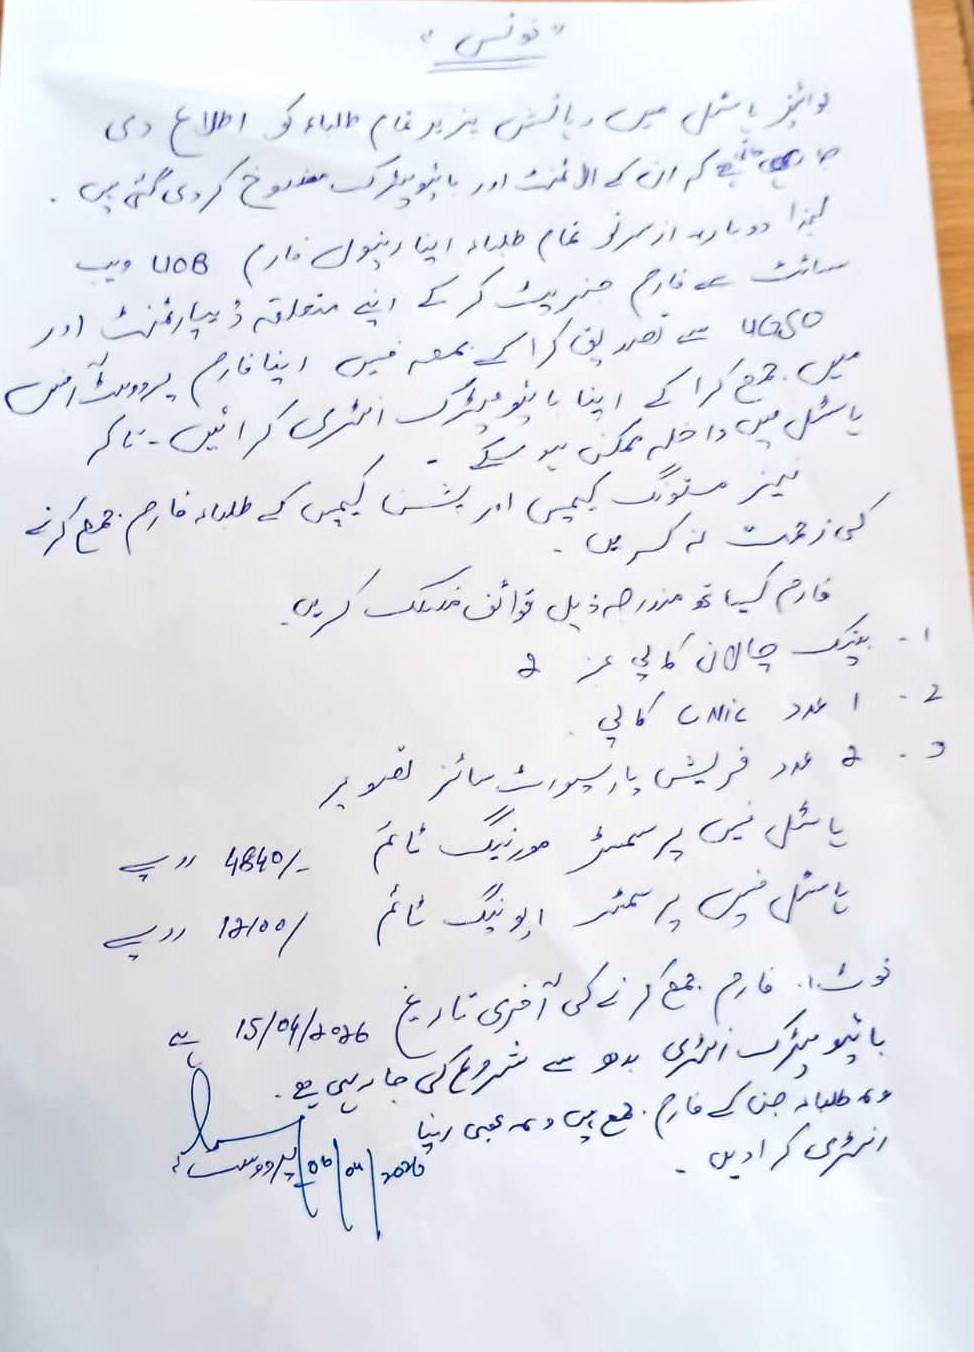 "نوٹس"
بوائیز ہاسٹل میں رہائش پزیر تمام طلباء کو اطلاع دی
جا رہی ہے کہ ان کے الاٹمنٹ اور بائیومیٹرک منسوخ کر دی گئی ہیں ۔
لہذا دوبارہ ازسرنو تمام طلباء اپنا رینول فارم UOB ویب
سائٹ سے فارم جنریٹ کر کے اپنے متعلقہ ڈیپارٹمنٹ اور
UGSO سے تصدیق کرا کے بمعہ فیس اپنا فارم پرووسٹ آفس
میں جمع کرا کے اپنا بائیومیٹرک انٹری کرائیں ۔ تاکہ
ہاسٹل میں داخلہ ممکن ہو سکے ۔
نیز مستونگ کیمپس اور پشین کیمپس کے طلباء فارم جمع کرنے
کی زحمت نہ کریں ۔
فارم کیساتھ مندرجہ ذیل کوائف منسلک کریں۔
1 - بینک چالان کاپی عدد 2
2 - 1 عدد CNIC کاپی ۔
3 - 2 عدد فریش پاسپورٹ سائز تصویر
ہاسٹل فیس پر سمسٹر مورننگ ٹائم 4840/- روپے
ہاسٹل فیس پر سمسٹر ایوننگ ٹائم 12100/ روپے
نوٹ:۔ فارم جمع کرنے کی آخری تاریخ 15/04/2026 ہے
بائیومیٹرک انٹری بدھ سے شروع کی جا رہی ہے ۔
وہ طلباء جن کے فارم جمع ہیں وہ بھی اپنا
انٹری کرا دیں ۔
پرووسٹ
06/04/2026